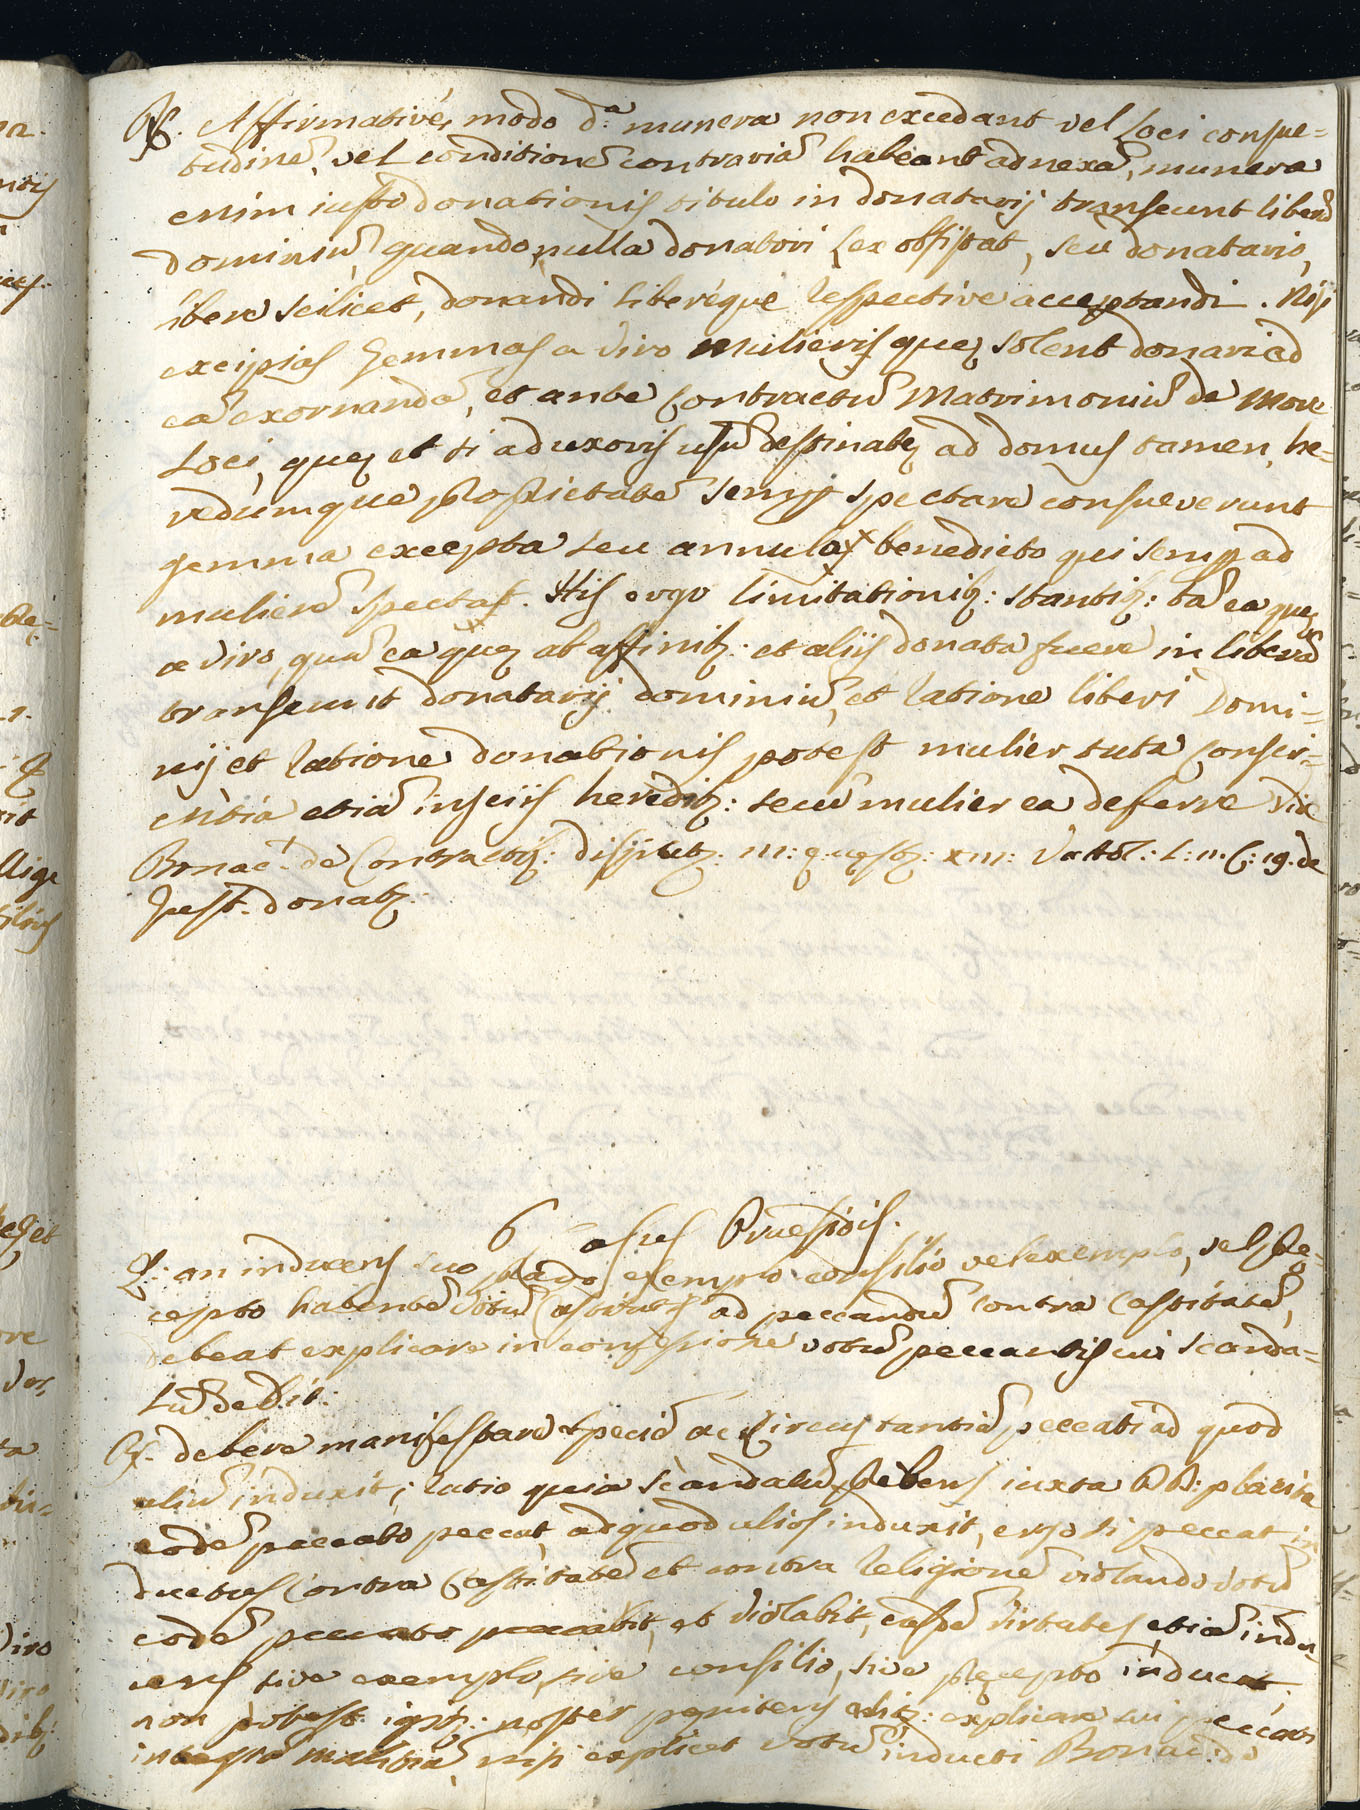 R. Affirmative, modo d.ª munera non excedant vel Loci consue=
tudinē, vel conditionē contrariā habeant adnexā, munera
enim iusto donationis titulo in donatarij transeunt liberū
dominiū, quando nulla donatori Lex obsistat, seu donatario,
libere scilicet, donandi libereque respective acceptandi. Nisi
excipias Gemmas a Viro mulieris quę solent donari ad
eā exornandā, et ante Contractū Matrimoniū de More
Loci, quę et si ad uxoris usū destinatę ad domus tamen, he=
redumque proprietatē semp spectare consueverunt
gemma excepta seu annulo benedicto qui semp ad
mulierē spectat. His ergo limitationib: stantib: tā ea quę
a Viro, quā ea quę ab affinib: et aliis donata fuere in liberū
transeunt donatarij dominiū, et ratione liberi Domi=
nij et ratione donationis potest mulier tuta Consci=
entia etiā insciis heredib: secū mulier ea deferre Vide
Bonac: de Contractib: disput: III: quęst: XIII: L: II. C: 19. de
Just. donat:
6 Casus Praesidis.
Q: an inducens suo consilio vel exemplo, vel prę=
cepto habentē Votū Castitatis ad peccandū contra Castitatē,
debeat explicare in confessione votū peccantis cui scanda=
lū dedit.
R. debere manifestare speciē ac Circustantiā peccati ad quod
aliū induxit; ratio quia scandalū prębens iuxta DD: placita
eodē peccato peccat, ad quod alios induxit, ergo si peccat in
ductus Contra Castitatē et contra Religionē violando votū
eodē peccato peccabit, et Violabit, easdē Virtutes etiā indu
cens sive exemplo, sive consilio, sive pręcepto inducat,
non potest igit: noster pęnitens explicare sui peccati
malitiā, nisi explicet votū inducti Bonac: de